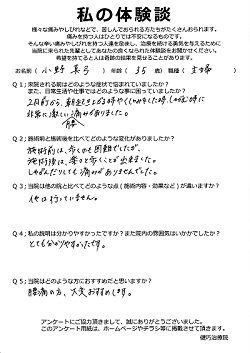 私の体験談
様々な痛みやしびれなどで、苦しんでおられる方たちがたくさんおられます。
痛みを持つ人はひとりでは不安になるものです。
そんな辛い痛みやしびれを持つ人達を励まし、治療を続ける勇気を与えるために
当院に来られた先輩としてあなたの良くなられた体験談をお聞かせください。
希望を持てると人は奇跡の結果を見せることがあります。
お名前（小野 真弓）年齢（35歳）職種（主婦）
Q1；来院される前はどのような症状で悩まれていましたか？
また、日常生活や仕事ではどのような事に困っていましたか？
2月前から、朝起き上がる時や
非常に激しい痛みがありました。
Q2；施術前と施術後を比べてどのような変化がありましたか？
施術前は、歩くのも困難でしたが、
施術後は、楽々と歩くことが出来ました。
しばらくしても痛みがありませんでした。
Q3；当院は他の院と比べてどのような点（施術内容・効果など）が違いますか？
他は行っていません。
Q4；私の説明は分かりやすかったですか？また院内の雰囲気はいかがでしたか？
とても分かりやすかったです。
Q5；当院はどのような方におすすめだと思いますか？
腰痛の方、大変おすすめします。
アンケートにご協力頂きまして、誠にありがとうございました。
このアンケート用紙は、ホームページやチラシ等に掲載させて頂きます。
健巧治療院